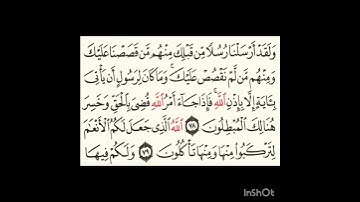 وَلَقَدْ أَرْسَلْنَا رُسُلًا مِّن قَبْلِكَ مِنْهُم مَّن قَصَصْنَا عَلَيْكَ
وَمِنْهُم مَّن لَّمْ نَقْصُصْ عَلَيْكَ ۗ وَمَا كَانَ لِرَسُولٍ أَن يَأْتِىَ
بِـَٔايَةٍ إِلَّا بِإِذْنِ ٱللَّهِ ۚ فَإِذَا جَآءَ أَمْرُ ٱللَّهِ قُضِىَ بِٱلْحَقِّ وَخَسِرَ
هُنَالِكَ ٱلْمُبْطِلُونَ ٧٨ ٱللَّهُ ٱلَّذِى جَعَلَ لَكُمُ ٱلْأَنْعَـٰمَ
لِتَرْكَبُوا۟ مِنْهَا وَمِنْهَا تَأْكُلُونَ ٧٩ وَلَكُمْ فِيهَا
InShOt